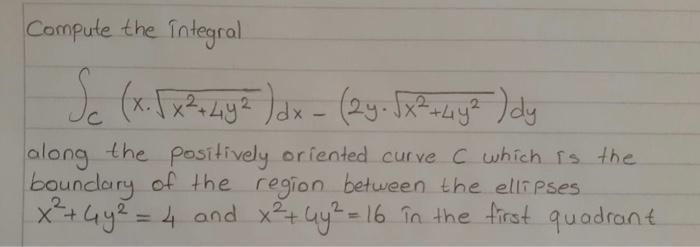 Compute the integral
∫_C (x.√(x²+4y²))dx - (2y.√(x²+4y²))dy
along the positively oriented curve C which is the
boundary of the region between the ellipses
x²+4y² = 4 and x²+4y² = 16 in the first quadrant